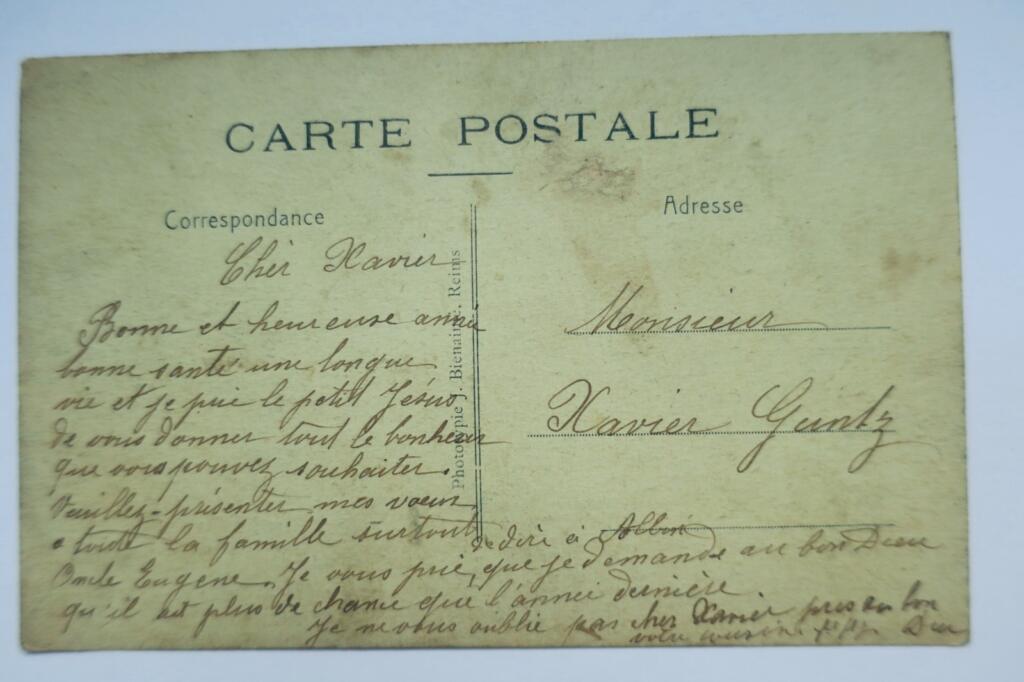 CARTE POSTALE
Correspondance
Adresse
Cher Xavier
Bonne et heureuse année
bonne santé une longue
vie et je prie le petit Jésus
de vous donner tout le bonheur
que vous pouvez souhaiter.
Veuillez-présenter mes voeux
a toute la famille surtout
Oncle Eugene. Je vous prie, de dire à Albin
que je demande au bon Dieu
qu'il ait plus de chance que l'année dernière
Je ne vous oublie pas cher Xavier près du bon
Dieu
votre cousine
Phototypie J. Bienaimé, Reims
Monsieur
Xavier Guntz